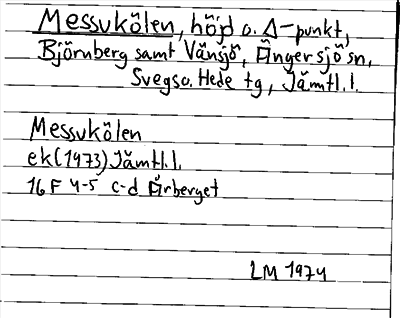 Messukölen, höjd o. Δ-punkt,
Björnberg samt Vänsjö, Ängersjö sn,
Svegs o. Hede tg, Jämtl.l.
Messukölen
ek (1973) Jämtl.l.
16 F 4-5 c-d Årberget
LM 1974